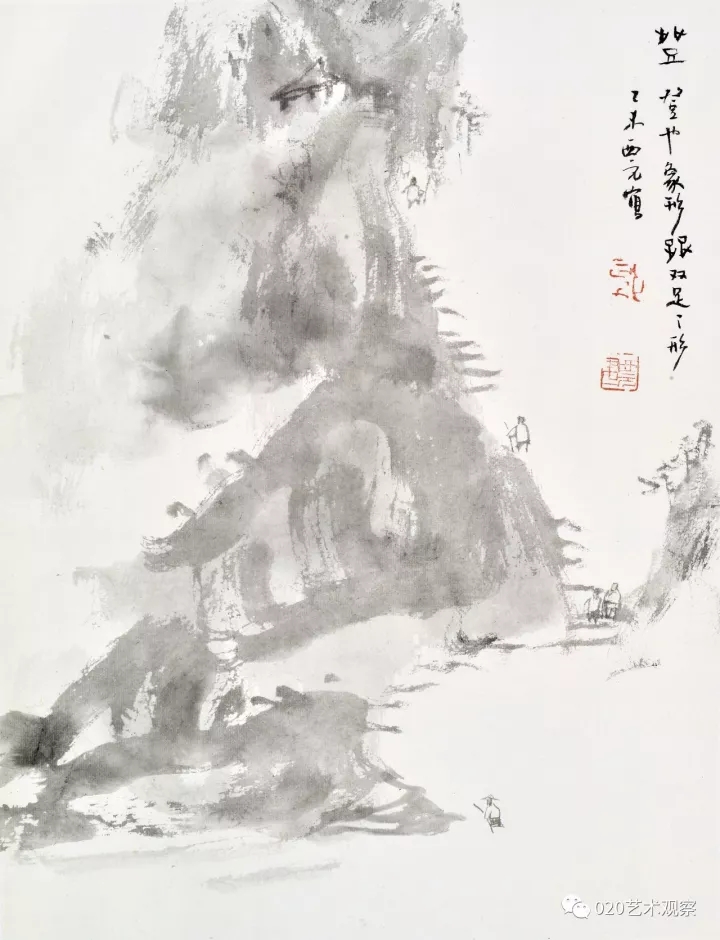 登也象形跟双足之形
乙未西元
020艺术观察